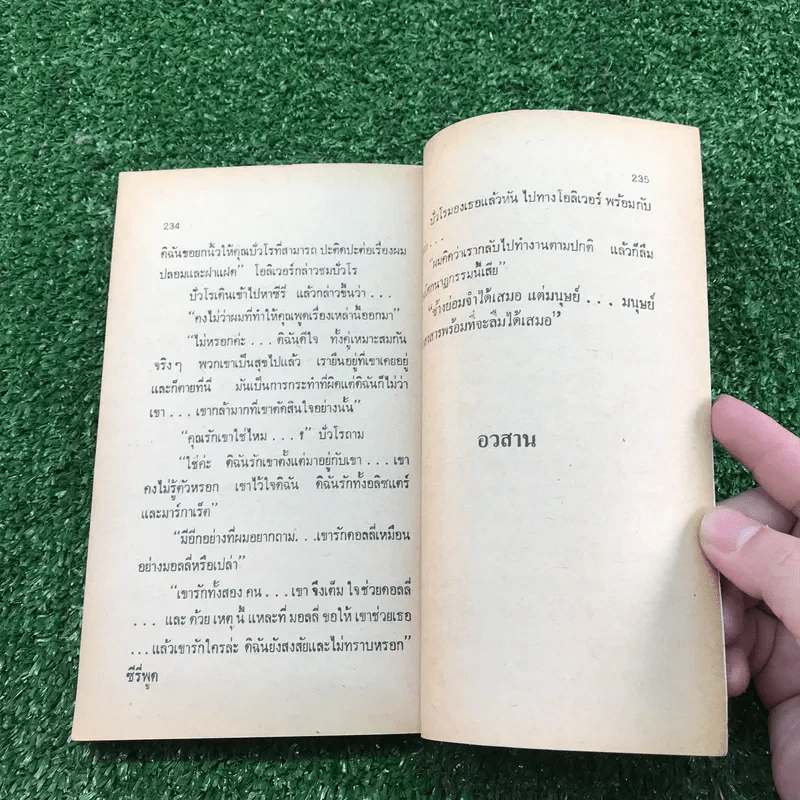 234
ดิฉันขอยกนิ้วให้คุณบัวโรที่สามารถ ปะติดปะต่อเรื่องผม
ปลอมและฝาแฝด” โอลิเวอร์กล่าวชมบัวโร
บัวโรเดินเข้าไปหาซีรี่ แล้วกล่าวขึ้นว่า . . .
“คงไม่ว่าผมที่ทำให้คุณพูดเรื่องเหล่านี้ออกมา”
“ไม่หรอกค่ะ . . . ดิฉันดีใจ ทั้งคู่เหมาะสมกัน
จริง ๆ พวกเขาเป็นสุขไปแล้ว เรายืนอยู่ที่เขาเคยอยู่
และก็ตายที่นี่ มันเป็นการกระทำที่ผิดแต่ดิฉันก็ไม่ว่า
เขา . . . เขากล้ามากที่เขาตัดสินใจอย่างนั้น”
“คุณรักเขาใช่ไหม . . . ?” บัวโรถาม
“ใช่ค่ะ ดิฉันรักเขาตั้งแต่มาอยู่กับเขา . . . เขา
คงไม่รู้ตัวหรอก เขาไว้ใจดิฉัน ดิฉันรักทั้งอลิซแตร์
และมาร์กาเร็ต”
“มีอีกอย่างที่ผมอยากถาม. . .เขารักดอลลี่เหมือน
อย่างมอลลี่หรือเปล่า”
“เขารักทั้งสอง คน . . .เขา จึงเต็ม ใจช่วยดอลลี่
. . . และ ด้วย เหตุ นี้ แหละที่ มอลลี่ ขอให้ เขาช่วยเธอ
. . . แล้วเขารักใครล่ะ ดิฉันยังสงสัยและไม่ทราบหรอก”
ซีรี่พูด
235
บัวโรมองเธอแล้วหัน ไปทางโอลิเวอร์ พร้อมกับ
. . .
“ผมคิดว่าเรากลับไปทำงานตามปกติ แล้วก็ลืม
นาฏกรรมนี้เสีย”
“ช้างย่อมจำได้เสมอ แต่มนุษย์ . . . มนุษย์
พร้อมที่จะลืมได้เสมอ”
อวสาน